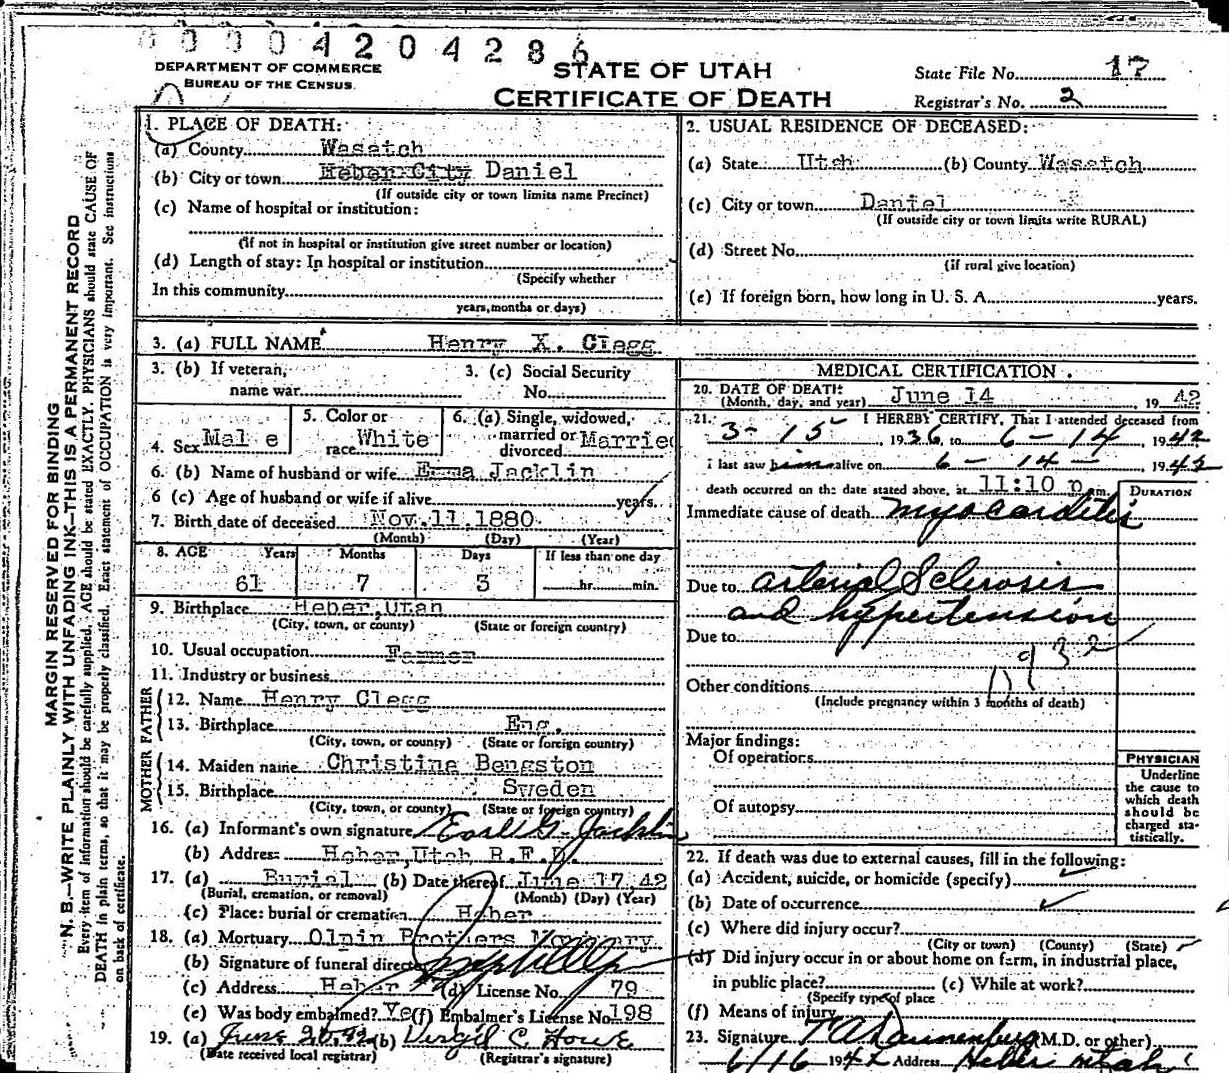 00004204286
DEPARTMENT OF COMMERCE
BUREAU OF THE CENSUS
STATE OF UTAH
CERTIFICATE OF DEATH
State File No. 17
Registrar's No. 2
1. PLACE OF DEATH:
(a) County Wasatch
(b) City or town Heber City Daniel
(If outside city or town limits name Precinct)
(c) Name of hospital or institution:
(If not in hospital or institution give street number or location)
(d) Length of stay: In hospital or institution
(Specify whether
In this community
years, months or days)
2. USUAL RESIDENCE OF DECEASED:
(a) State Utah (b) County Wasatch
(c) City or town Daniel
(If outside city or town limits write RURAL)
(d) Street No.
(if rural give location)
(e) If foreign born, how long in U. S. A. years.
3. (a) FULL NAME Henry X. Clegg
3. (b) If veteran,
name war
3. (c) Social Security
No.
4. Sex Male
5. Color or
race White
6. (a) Single, widowed,
married or Married
divorced
6. (b) Name of husband or wife Emma Jacklin
6 (c) Age of husband or wife if alive years.
7. Birth date of deceased Nov. 11, 1880
(Month) (Day) (Year)
8. AGE Years Months Days If less than one day
61 7 3 hr. min.
9. Birthplace Heber, Utah
(City, town, or county) (State or foreign country)
10. Usual occupation Farmer
11. Industry or business
FATHER
12. Name Henry Clegg
13. Birthplace Eng.
(City, town, or county) (State or foreign country)
MOTHER
14. Maiden name Christina Bengston
15. Birthplace Sweden
(City, town, or county) (State or foreign country)
16. (a) Informant's own signature Earl G. Jacklin
(b) Address Heber, Utah R.F.D.
17. (a) Burial (b) Date thereof June 17, 42
(Burial, cremation, or removal) (Month) (Day) (Year)
(c) Place: burial or cremation Heber
18. (a) Mortuary Olpin Brothers Mortuary
(b) Signature of funeral director
(c) Address Heber (d) License No. 79
(e) Was body embalmed? Yes (f) Embalmer's License No. 198
19. (a) June 20, 42 (b) Virgil C Howe
(Date received local registrar) (Registrar's signature)
MEDICAL CERTIFICATION.
20. DATE OF DEATH:
(Month, day, and year) June 14 19 42
21. I HEREBY CERTIFY, That I attended deceased from
3-15, 1936, to 6-14, 1942
I last saw him alive on 6-14-, 1942
death occurred on the date stated above, at 11:10 p.m.
DURATION
Immediate cause of death myocarditis
Due to arterial Sclerosis
and hypertension
Due to
932
Other conditions
(Include pregnancy within 3 months of death)
Major findings:
Of operations
Of autopsy
PHYSICIAN
Underline
the cause to
which death
should be
charged sta-
tistically.
22. If death was due to external causes, fill in the following:
(a) Accident, suicide, or homicide (specify)
(b) Date of occurrence
(c) Where did injury occur?
(City or town) (County) (State)
(d) Did injury occur in or about home on farm, in industrial place,
in public place? (e) While at work?
(Specify type of place
(f) Means of injury
23. Signature (M.D. or other)
6/16 1942 Address Heber Utah
MARGIN RESERVED FOR BINDING
N. B.—WRITE PLAINLY WITH UNFADING INK—THIS IS A PERMANENT RECORD
Every item of information should be carefully supplied. AGE should be stated EXACTLY. PHYSICIANS should state CAUSE OF
DEATH in plain terms, so that it may be properly classified. Exact statement of OCCUPATION is very important. See instructions
on back of certificate.